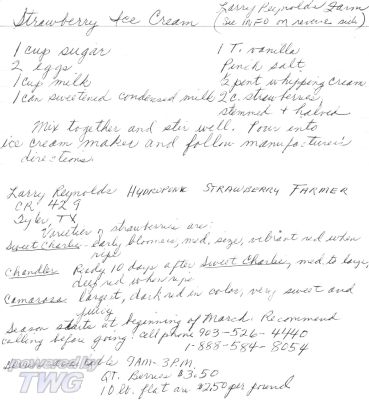 Strawberry Ice Cream
Larry Reynolds Farm
(See INFO on reverse side)
1 cup sugar
2 eggs
1 cup milk
1 can sweetened condensed milk
1 T. vanilla
Pinch salt
pint whipping cream
2 c. strawberries,
stemmed + halved
Mix together and stir well. Pour into
ice cream maker and follow manufacturer's
directions.
Larry Reynolds HYDROPONIC STRAWBERRY FARMER
CR 429
Tyler, TX
Varieties of strawberries are:
Sweet Charlie - early bloomers, med. size, vibrant red when
ripe
Chandler Ready 10 days after Sweet Charlie, med. to large,
deep red when ripe
Camarosa largest, dark red in color, very sweet and
juicy
Season starts at beginning of March. Recommend
calling before going: cell phone 903-526-4440
1-888-584-8054
table 9AM-3PM
QT. Berries $3.50
10 lb. flat are $2.50 per pound
powered by
TWG